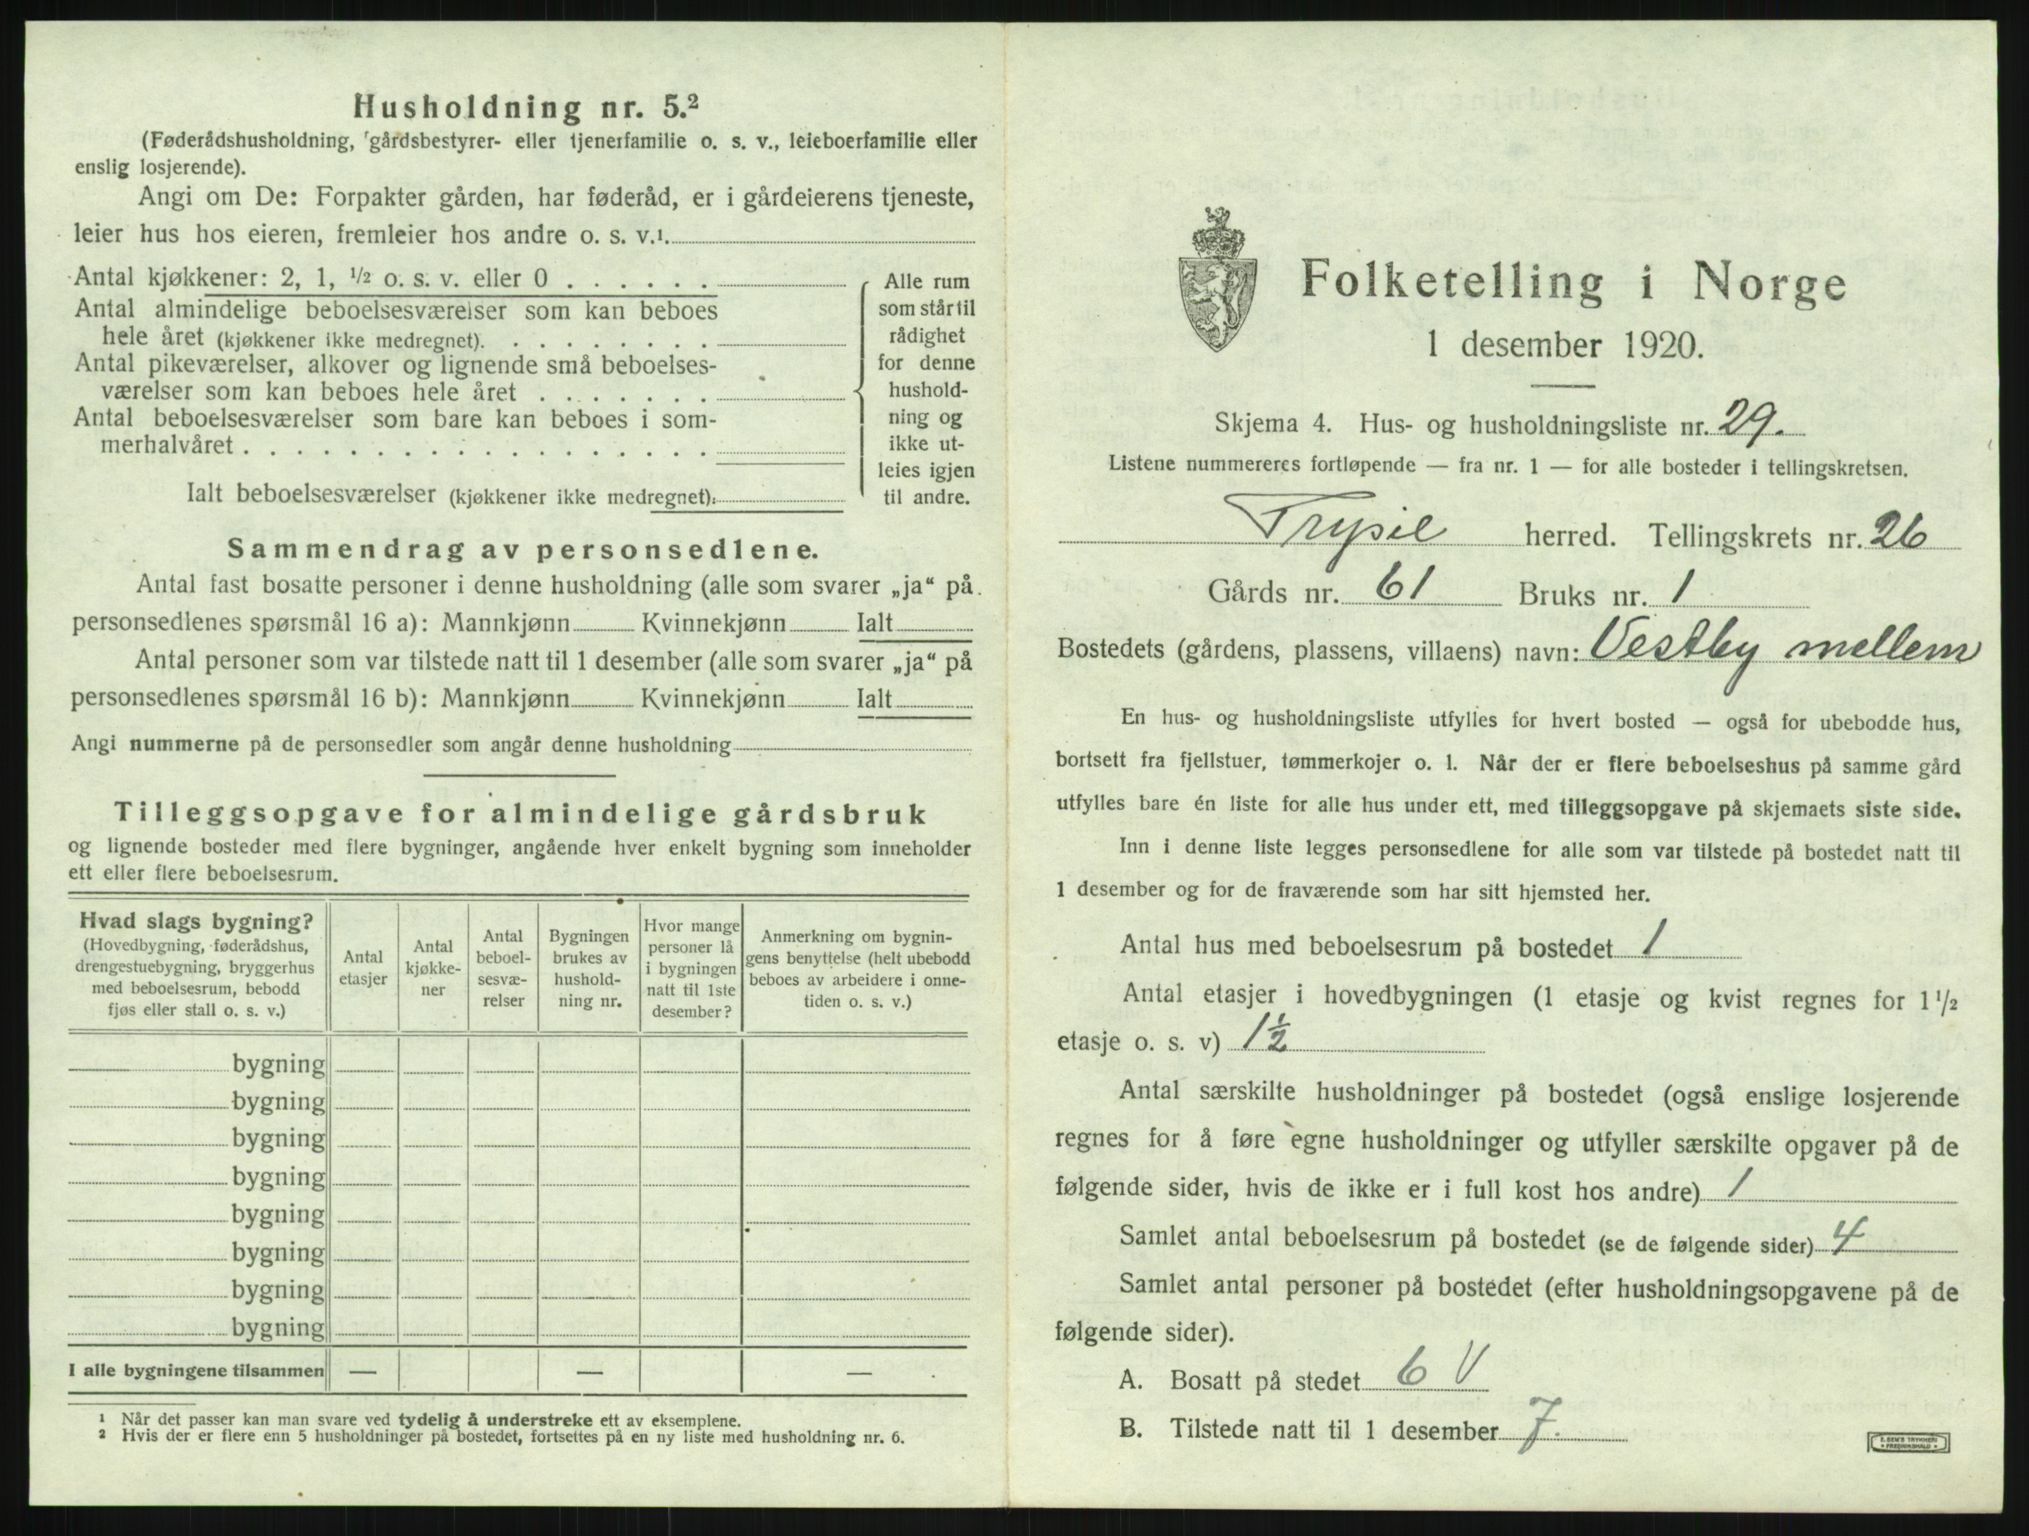 Husholdning nr. 5.²
(Føderådshusholdning, gårdsbestyrer- eller tjenerfamilie o. s. v., leieboerfamilie eller
enslig losjerende).
Angi om De: Forpakter gården, har føderåd, er i gårdeierens tjeneste,
leier hus hos eieren, fremleier hos andre o. s. v.¹
Antal kjøkkener: 2, 1, ½ o. s. v. eller 0 . . . . . .
Antal almindelige beboelsesværelser som kan beboes
hele året (kjøkkener ikke medregnet). . . . . . . . .
Antal pikeværelser, alkover og lignende små beboelses-
værelser som kan beboes hele året . . . . . . .
Antal beboelsesværelser som bare kan beboes i som-
merhalvåret . . . . . . . . . . . . . . . . . .
Ialt beboelsesværelser (kjøkkener ikke medregnet):
Alle rum
som står til
rådighet
for denne
hushold-
ning og
ikke ut-
leies igjen
til andre.
Sammendrag av personsedlene.
Antal fast bosatte personer i denne husholdning (alle som svarer „ja“ på
personsedlenes spørsmål 16 a): Mannkjønn Kvinnekjønn Ialt
Antal personer som var tilstede natt til 1 desember (alle som svarer „ja“ på
personsedlenes spørsmål 16 b): Mannkjønn Kvinnekjønn Ialt
Angi nummerne på de personsedler som angår denne husholdning
Tilleggsopgave for almindelige gårdsbruk
og lignende bosteder med flere bygninger, angående hver enkelt bygning som inneholder
ett eller flere beboelsesrum.
Hvad slags bygning?
(Hovedbygning, føderådshus,
drengestuebygning, bryggerhus
med beboelsesrum, bebodd
fjøs eller stall o. s. v.)
Antal
etasjer
Antal
kjøkke-
ner
Antal
beboel-
sesvæ-
relser
Bygningen
brukes av
hushold-
ning nr.
Hvor mange
personer lå
i bygningen
natt til 1ste
desember?
Anmerkning om bygnin-
gens benyttelse (helt ubebodd
beboes av arbeidere i onne-
tiden o. s. v.)
bygning
bygning
bygning
bygning
bygning
bygning
bygning
bygning
I alle bygningene tilsammen — — —
¹ Når det passer kan man svare ved tydelig å understreke ett av eksemplene.
² Hvis der er flere enn 5 husholdninger på bostedet, fortsettes på en ny liste med husholdning nr. 6.
Folketelling i Norge
1 desember 1920.
Skjema 4. Hus- og husholdningsliste nr. 29.
Listene nummereres fortløpende — fra nr. 1 — for alle bosteder i tellingskretsen.
Trysil herred. Tellingskrets nr. 26
Gårds nr. 61 Bruks nr. 1
Bostedets (gårdens, plassens, villaens) navn: Vestby mellem
En hus- og husholdningsliste utfylles for hvert bosted — også for ubebodde hus,
bortsett fra fjellstuer, tømmerkojer o. l. Når der er flere beboelseshus på samme gård
utfylles bare én liste for alle hus under ett, med tilleggsopgave på skjemaets siste side.
Inn i denne liste legges personsedlene for alle som var tilstede på bostedet natt til
1 desember og for de fraværende som har sitt hjemsted her.
Antal hus med beboelsesrum på bostedet 1
Antal etasjer i hovedbygningen (1 etasje og kvist regnes for 1½
etasje o. s. v) 1½
Antal særskilte husholdninger på bostedet (også enslige losjerende
regnes for å føre egne husholdninger og utfyller særskilte opgaver på de
følgende sider, hvis de ikke er i full kost hos andre) 1
Samlet antal beboelsesrum på bostedet (se de følgende sider) 4
Samlet antal personer på bostedet (efter husholdningsopgavene på de
følgende sider).
A. Bosatt på stedet 6 V
B. Tilstede natt til 1 desember 7.
E. SEM'S TRYKKERI
FREDRIKSHALD